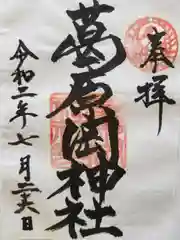 奉拝
葛原岡神社
令和二年七月二六日